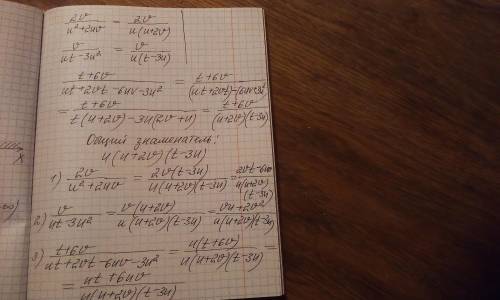 2v/(u²+2uv) = 2v/(u(u+2v))
v/(ut-3u²) = v/(u(t-3u))
(t+6v)/(ut+2vt-6uv-3u²) = (t+6v)/((ut+2vt)-(6uv+3u²
= (t+6v)/(t(u+2v)-3u(2v+u)) = (t+6v)/((u+2v)(t-3u))
Общий знаменатель:
u(u+2v)(t-3u)
1) 2v/(u²+2uv) = 2v(t-3u)/(u(u+2v)(t-3u)) = (2vt-6uv)/(u(u+2v)(t-3u))
2) v/(ut-3u²) = v(u+2v)/(u(u+2v)(t-3u)) = (vu+2v²)/(u(u+2v)(t-3u))
3) (t+6v)/(ut+2vt-6uv-3u²) = u(t+6v)/(u(u+2v)(t-3u)) =
= (ut+6uv)/(u(u+2v)(t-3u))